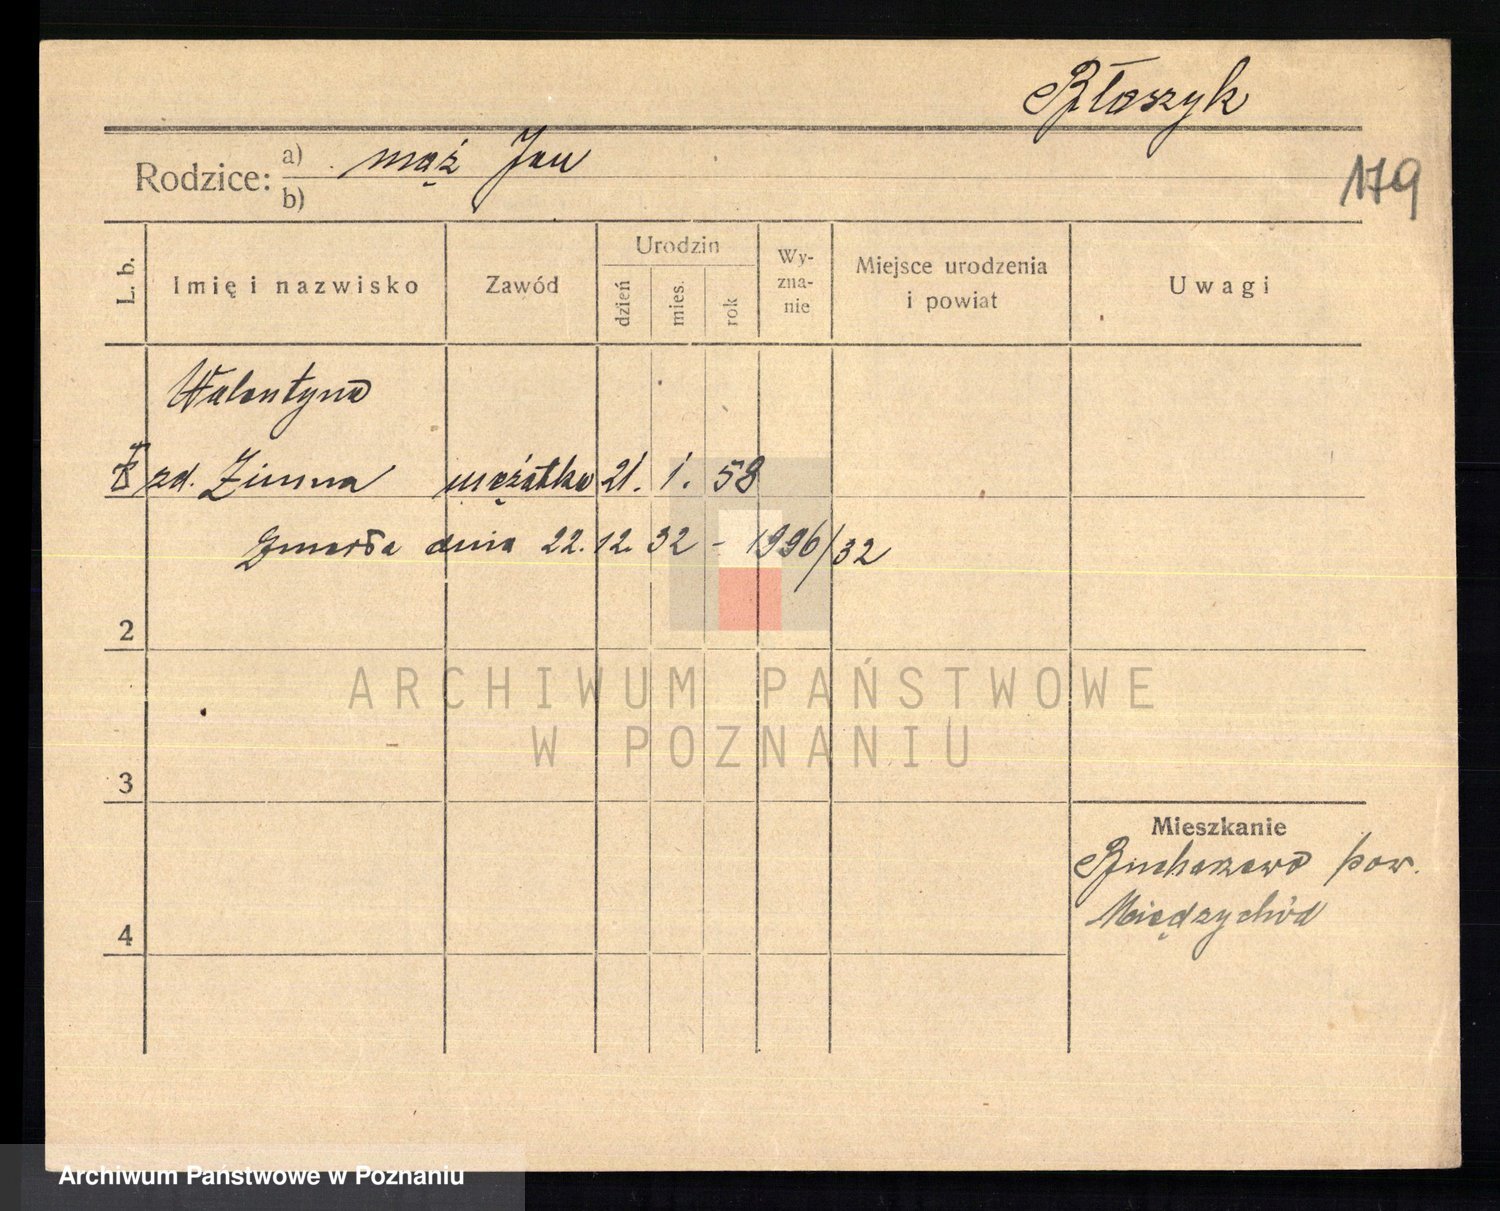 Błaszyk
Rodzice: a) mąż Jan
b)
179
L. b.
Imię i nazwisko
Zawód
Urodzin
dzień
mies.
rok
Wy-
zna-
nie
Miejsce urodzenia
i powiat
Uwagi
Walentyna
zd. Zimna mężatka 21. 1. 58
Zmarła dnia 22. 12. 32 - 1996/32
2
3
4
Mieszkanie
Bucharzewo pow.
Międzychód
ARCHIWUM PAŃSTWOWE
W POZNANIU
Archiwum Państwowe w Poznaniu